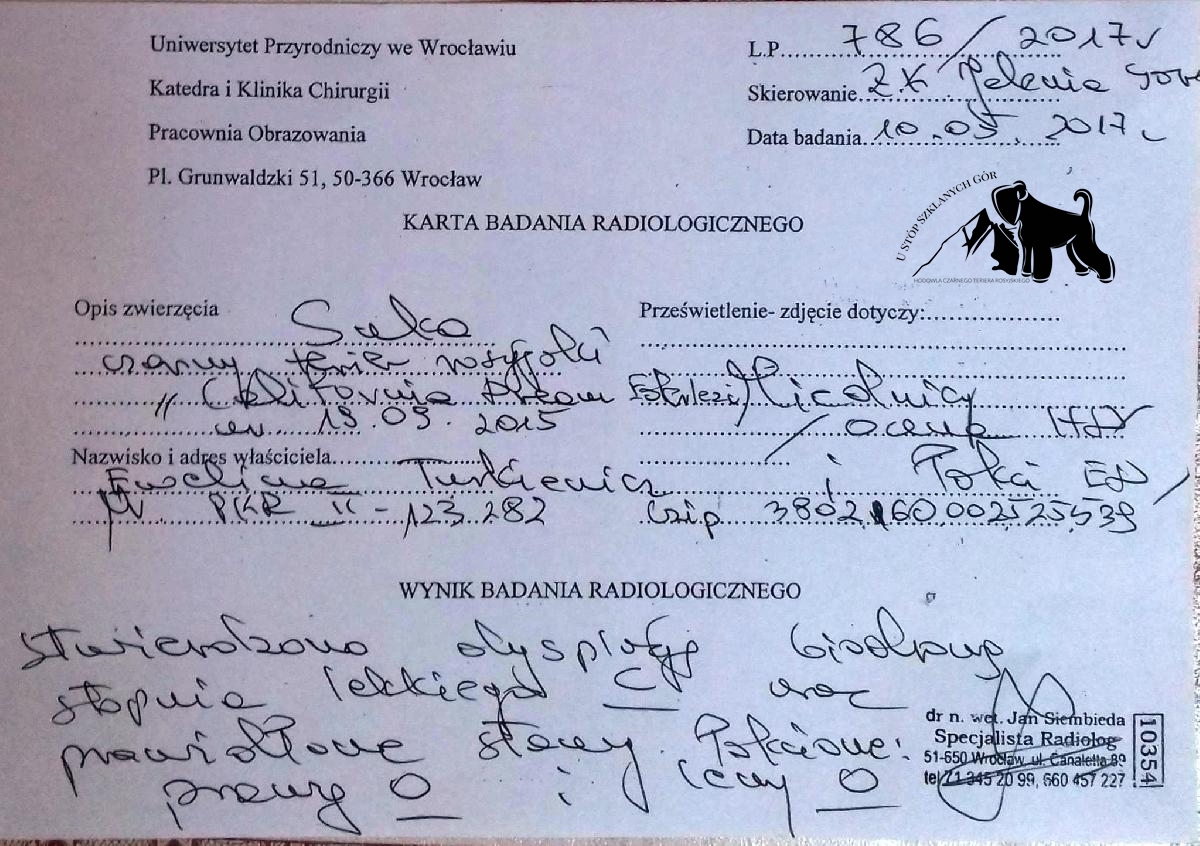 Uniwersytet Przyrodniczy we Wrocławiu
Katedra i Klinika Chirurgii
Pracownia Obrazowania
Pl. Grunwaldzki 51, 50-366 Wrocław
L.P. 786/2017r
Skierowanie Z.K Jelenia Góra
Data badania 10.05.2017r
U STÓP SZKLANYCH GÓR
HODOWLA CZARNEGO TERIERA ROSYJSKIEGO
KARTA BADANIA RADIOLOGICZNEGO
Opis zwierzęcia Suka
czarny terier rosyjski
ur. 19.09.2015
Nazwisko i adres właściciela
Ewelina Turkiewicz
Nr PKR II-123 282
Prześwietlenie- zdjęcie dotyczy:
Miednicy
/ocena HD
i łokci ED/
Czip 380260002525539
WYNIK BADANIA RADIOLOGICZNEGO
stwierdzono dysplazję biodrową
stopnia lekkiego C oraz
prawidłowe stawy łokciowe:
prawy 0 i lewy 0
dr n. wet. Jan Siembieda
Specjalista Radiolog
51-650 Wrocław, ul. Canaletta 89
tel 71 345 20 99, 660 457 227
10354